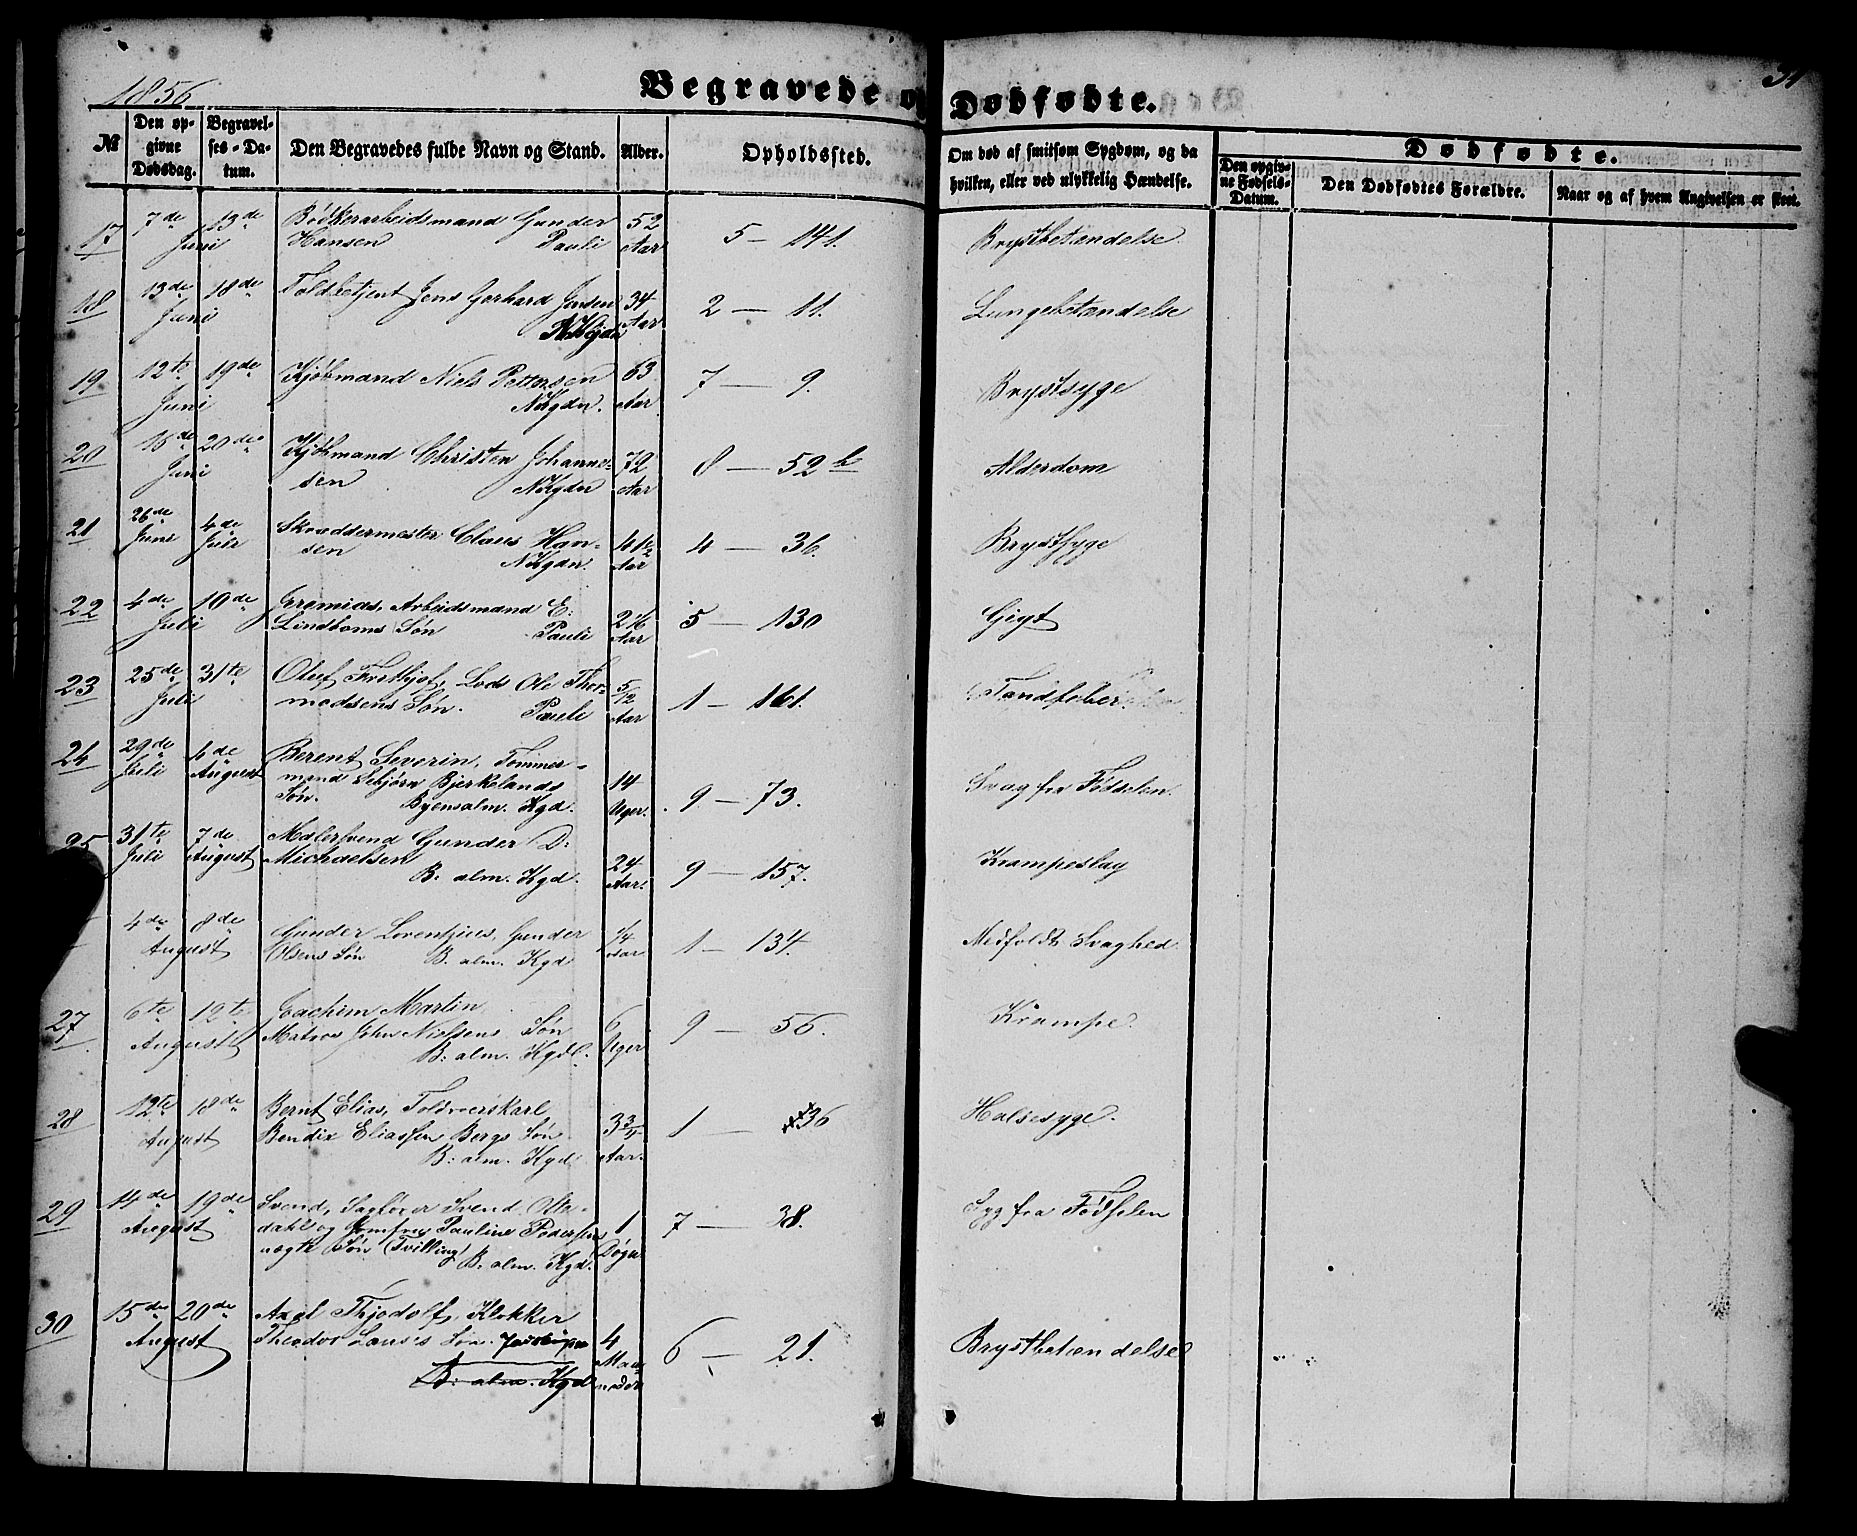 1856
34
Begravede og Dødfødte.
№ | Den opgivne Dødsdag. | Begravelses-Datum. | Den Begravedes fulde Navn og Stand. | Alder. | Opholdssted. | Om død af smitsom Sygdom, og da hvilken, eller ved ulykkelig Hændelse. | Dødfødte. | Den opgivne Fødsels-Datum. | Den Dødfødtes Forældre. | Naar og af hvem Angivelsen er skeet.
17 7de 13de Bödkerarbeidsmand Gunder 52
Juni Hansen Pauli Aar 5 — 141. Brystbetændelse.
18 13de 18de Toldbetjent Jens Gerhard Jensen 34
Juni NKgdn Aar 2 — 11. Lungebetændelse
19 12te 19de Kjøbmand Niels Pettersen 63
Juni NKgdn. Aar 7 — 9. Brystsyge
20 15de 20de Kjøbmand Christen Johanne- 72
Juni sen NKgdn Aar 8 — 52 b Alderdom
21 26de 4de Skræddermester Claus Han-
Juni Juli sen NKgdn. 41½ Aar 4 — 36. Brystsyge
22 4de 10de Jeremias, Arbeidsmand E:
Juli Lindboms Søn Pauli Aar 5 — 130 Gigt
23 25de 31te Oluf Frithjof, Lods Ole Thor- 5/12
Juli modsens Søn. Pauli Aar 1 — 161. Tandfeber.
24 29de 4de Berent Severin, Tømmer-
Juli August mand Bjerkelands 14
Søn. Byens alm. Kgd. Uger. 9 — 73. Svag fra Fødselen.
25 31te 7de Malersvend Gunder D:
Juli August Michaelsen 24
B. alm. Kgd. Aar. 9 — 157. Krampeslag
4de 8de Gunder Lorentzius, Gunder 1/4
August Olsens Søn B. alm. Kgd. Aar 1 — 134. Medfødt Svaghed.
27 6te 12te Joachim Martin,
August Matros John Nielsens Søn 6
B. alm. Kgd. Uger 9 — 56. Krampe.
28 12te 18de Bernt Elias, Toldroerskarl
August Bendix Eliassen Bergs Søn 3¾
B: alm. Kgd. Aar. 1 — 36 Halsesyge.
29 14de 19de Svend, Sagfører Svend Ofte-
August dahl og Jomfru Pauline Pedersens 1
uægte Søn (Tvilling) B. alm. Kgd. Døgn 7 — 38. Syg fra Fødselen
30 15de 20de Axel Thjodolf, Klokker
August Theodor Søn. 4
B: alm. Kgd Maaneder 6 — 21. Brystbetændelse